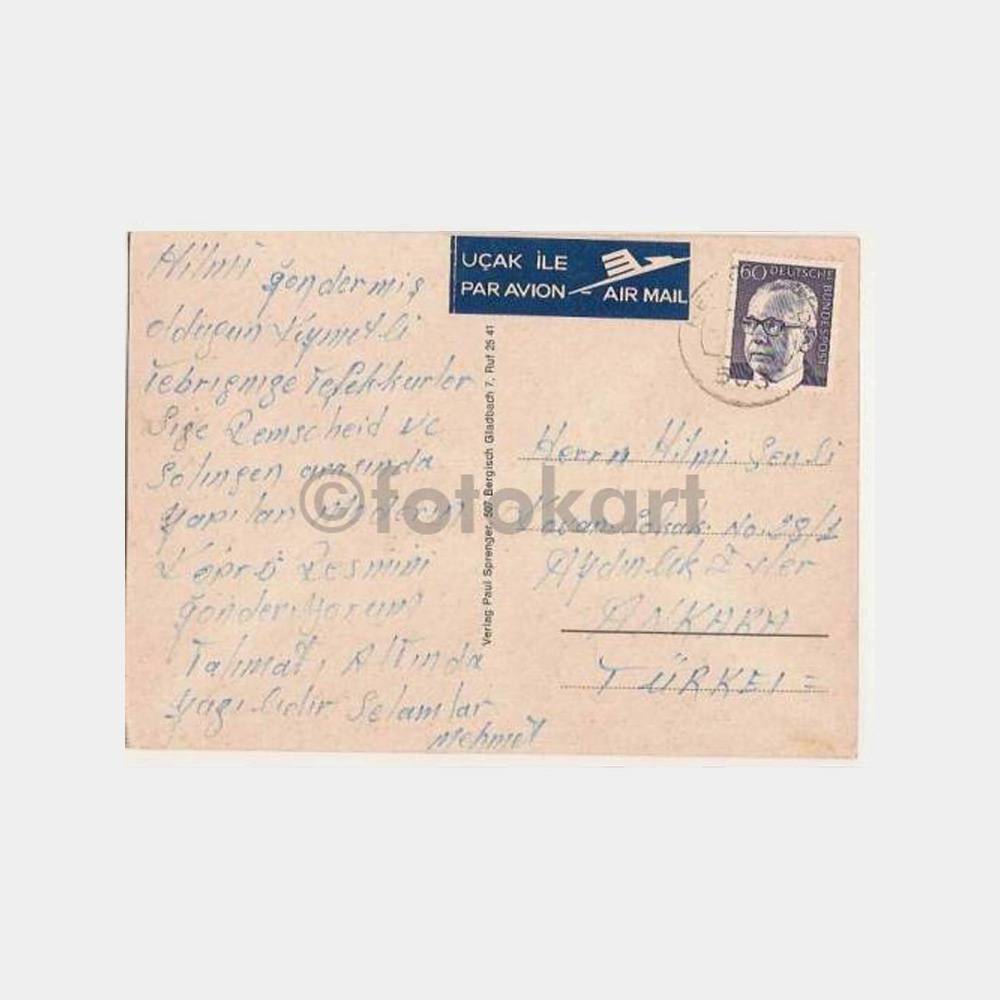 Hilmi
göndermiş
olduğun Kıymetli
Tebriğnize Teşekkürler
Size Remscheid ve
Solingen arasında
yapılan
Köprü Resmini
gönderiyorum
Talimatı Altında
yazılıdır Selamlar
Mehmet
UÇAK İLE
PAR AVION AIR MAIL
60 DEUTSCHE BUNDESPOST
Verlag: Paul Sprenger, 507 Bergisch Gladbach 7, Ruf 25 41
Herrn Hilmi Şenli
Sokak No. 28/1
Aydınlık Evler
ANKARA
TÜRKEI =
©fotokart